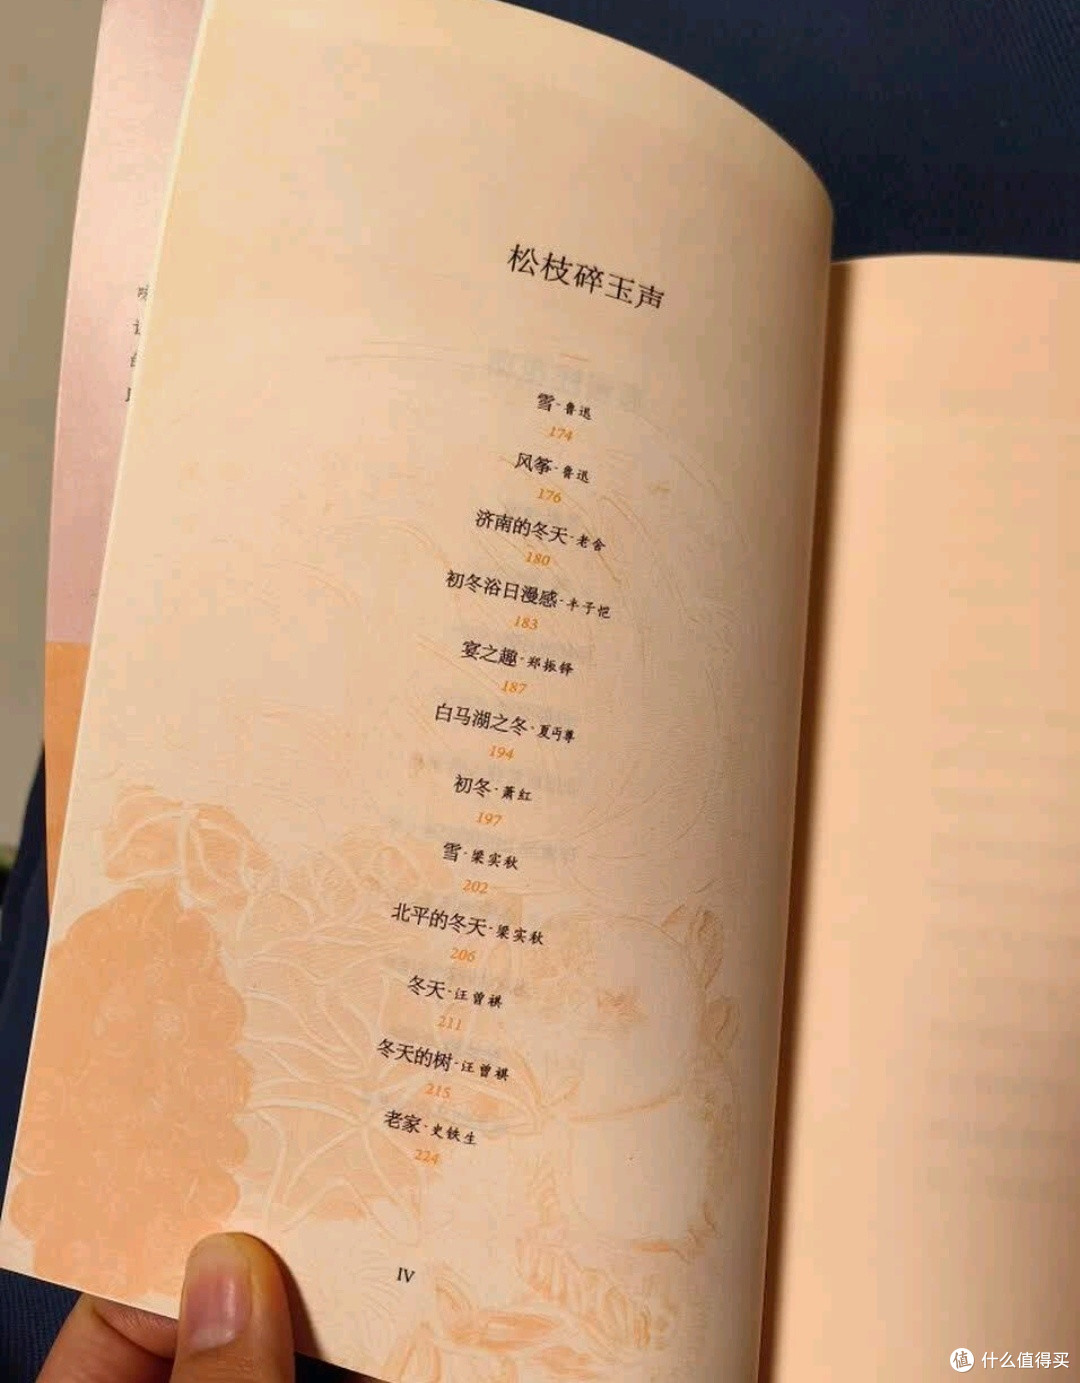 松枝碎玉声
雪·鲁迅
174
风筝·鲁迅
176
济南的冬天·老舍
180
初冬浴日漫感·丰子恺
183
宴之趣·郑振铎
187
白马湖之冬·夏丏尊
194
初冬·萧红
197
雪·梁实秋
202
北平的冬天·梁实秋
206
冬天·汪曾祺
211
冬天的树·汪曾祺
215
老家·史铁生
224
IV
值 什么值得买